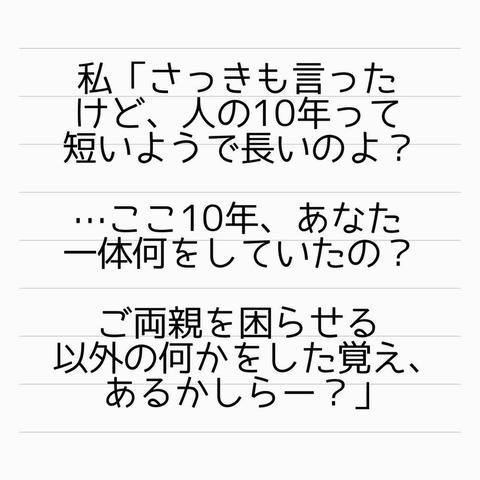 私「さっきも言った
けど、人の10年って
短いようで長いのよ？
…ここ10年、あなた
一体何をしていたの？
ご両親を困らせる
以外の何かをした覚え、
あるかしらー？」